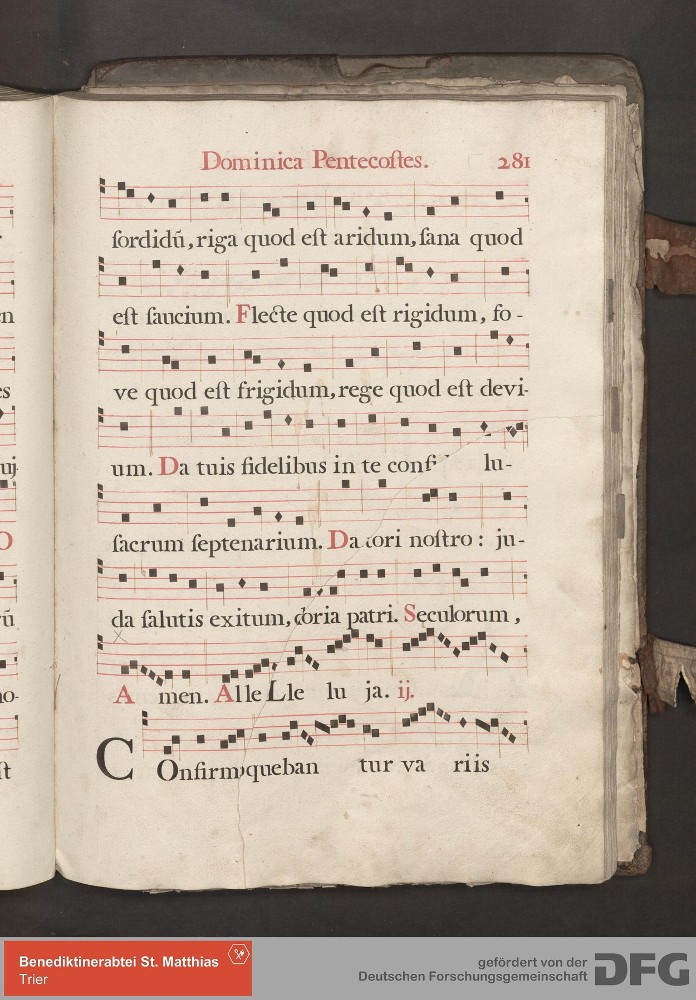 Dominica Pentecoſtes. 281
ſordidũ, riga quod eſt aridum, ſana quod
eſt ſaucium. Flecte quod eſt rigidum, fo-
ve quod eſt frigidum, rege quod eſt devi-
um. Da tuis fidelibus in te conf lu-
ſacrum ſeptenarium. Da tori noſtro: ju-
da ſalutis exitum, oria patri. Seculorum,
A men. Alle Lle lu ja. ij.
COnfirm queban tur va riis
en
es
uj
O
ũ
no-
ſt
Benediktinerabtei St. Matthias
Trier
gefördert von der
Deutschen Forschungsgemeinschaft
DFG